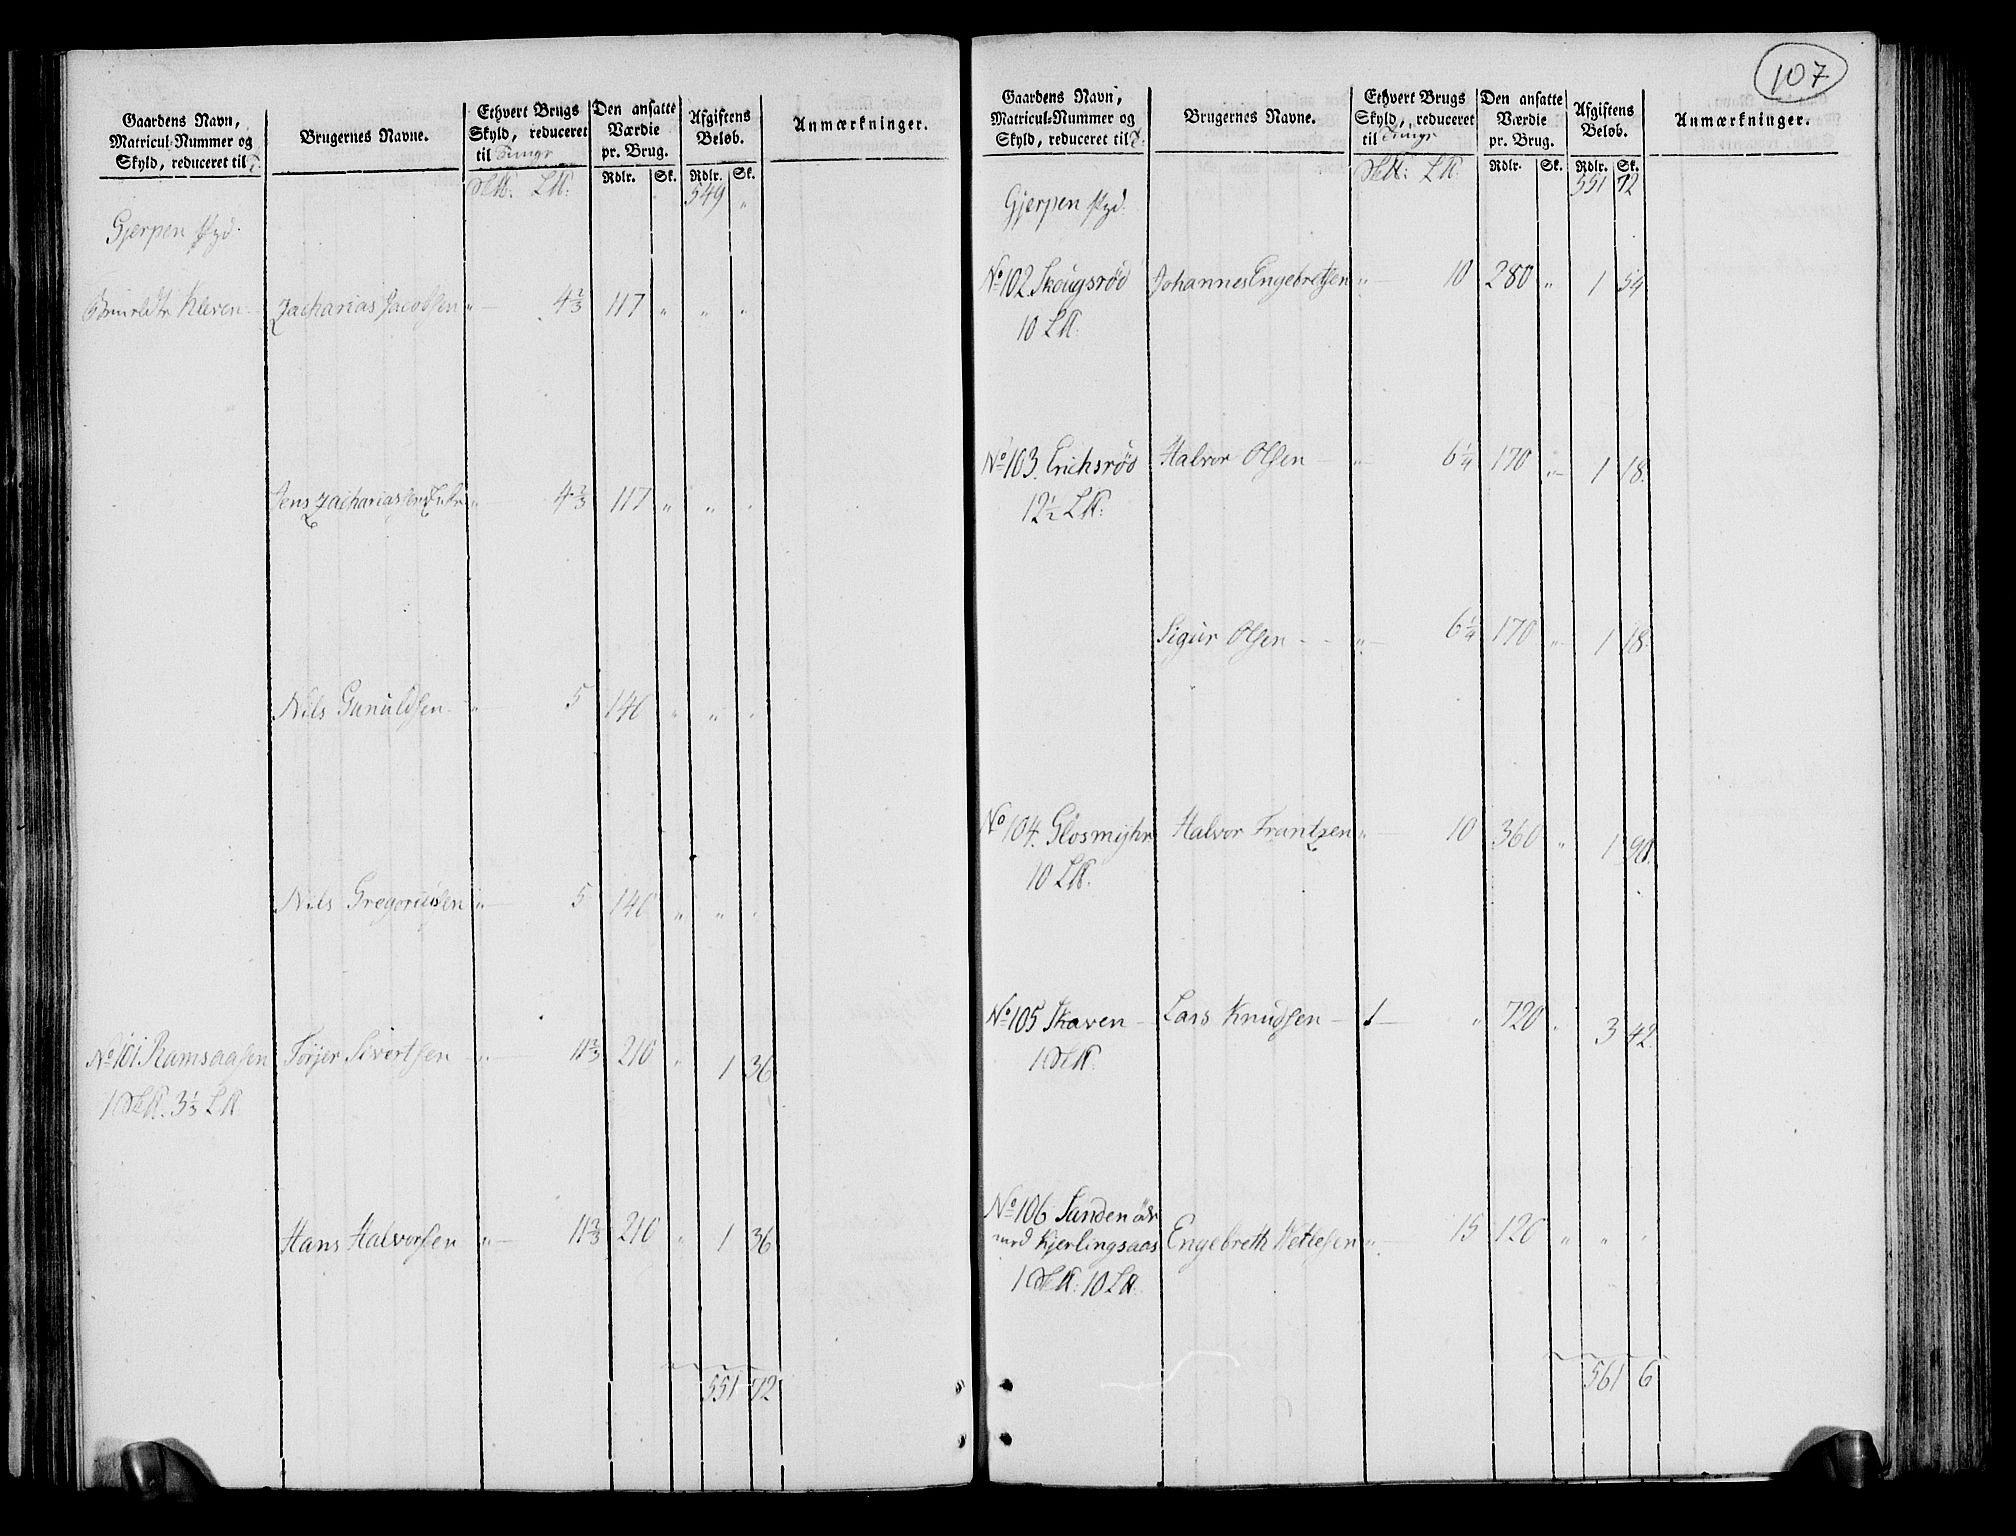 Gaardens Navn,
Matricul-Nummer og
Skyld, reduceret til T.
Brugernes Navne.
Ethvert Brugs
Skyld, reduceret
til Tunge
Den ansatte
Værdie
pr. Brug.
Afgiftens
Beløb.
Anmærkninger.
Rdlr. Sk. Rdlr. Sk.
549 "
Gjerpen
Kleven Zacharias Jacobsen " 4 2/3 117 " " "
Jens Zachariasen " 4 2/3 117 " " "
Nils Gunuldsen " 5 140 " " "
Nils Gregoriusen " 5 140 " " "
No 101 Ramsaasen Torjer Sivertsen " 11 2/3 210 " 1 36
3 1/3
Hans Halvorsen " 11 2/3 210 " 1 36
551 72
107
Gaardens Navn,
Matricul-Nummer og
Skyld, reduceret til T.
Brugernes Navne.
Ethvert Brugs
Skyld, reduceret
til Tunge
Den ansatte
Værdie
pr. Brug.
Afgiftens
Beløb.
Anmærkninger.
Rdlr. Sk. Rdlr. Sk.
551 72
Gjerpen
No 102 Skougsrød Johannes Engebretsen " 10 280 " 1 54
10
No 103. Erichsrød Halvor Olsen " 6 1/4 170 " 1 18.
12 1/2
Sigur Olsen " 6 1/4 170 " 1 18.
No 104. Glosmyhr Halvor Frantzen " 10 360 " 1 90.
10
No 105 Skaven Lars Knudsen 1 " 720 " 3 42.
1
No 106 Sanden øde
med Kjerlingsaas Engebreth Vetlesen " 15 120 " " "
1 10
561 6